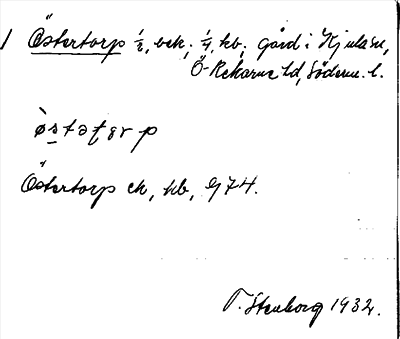 1 Östertorp 1/2, ock, 1/4, kb, gård i Kjula sn,
Ö-Rekarne hd, Söderm. l.
östatǫrp
Östertorp ek, kb, G74.
T. Stenborg 1932.